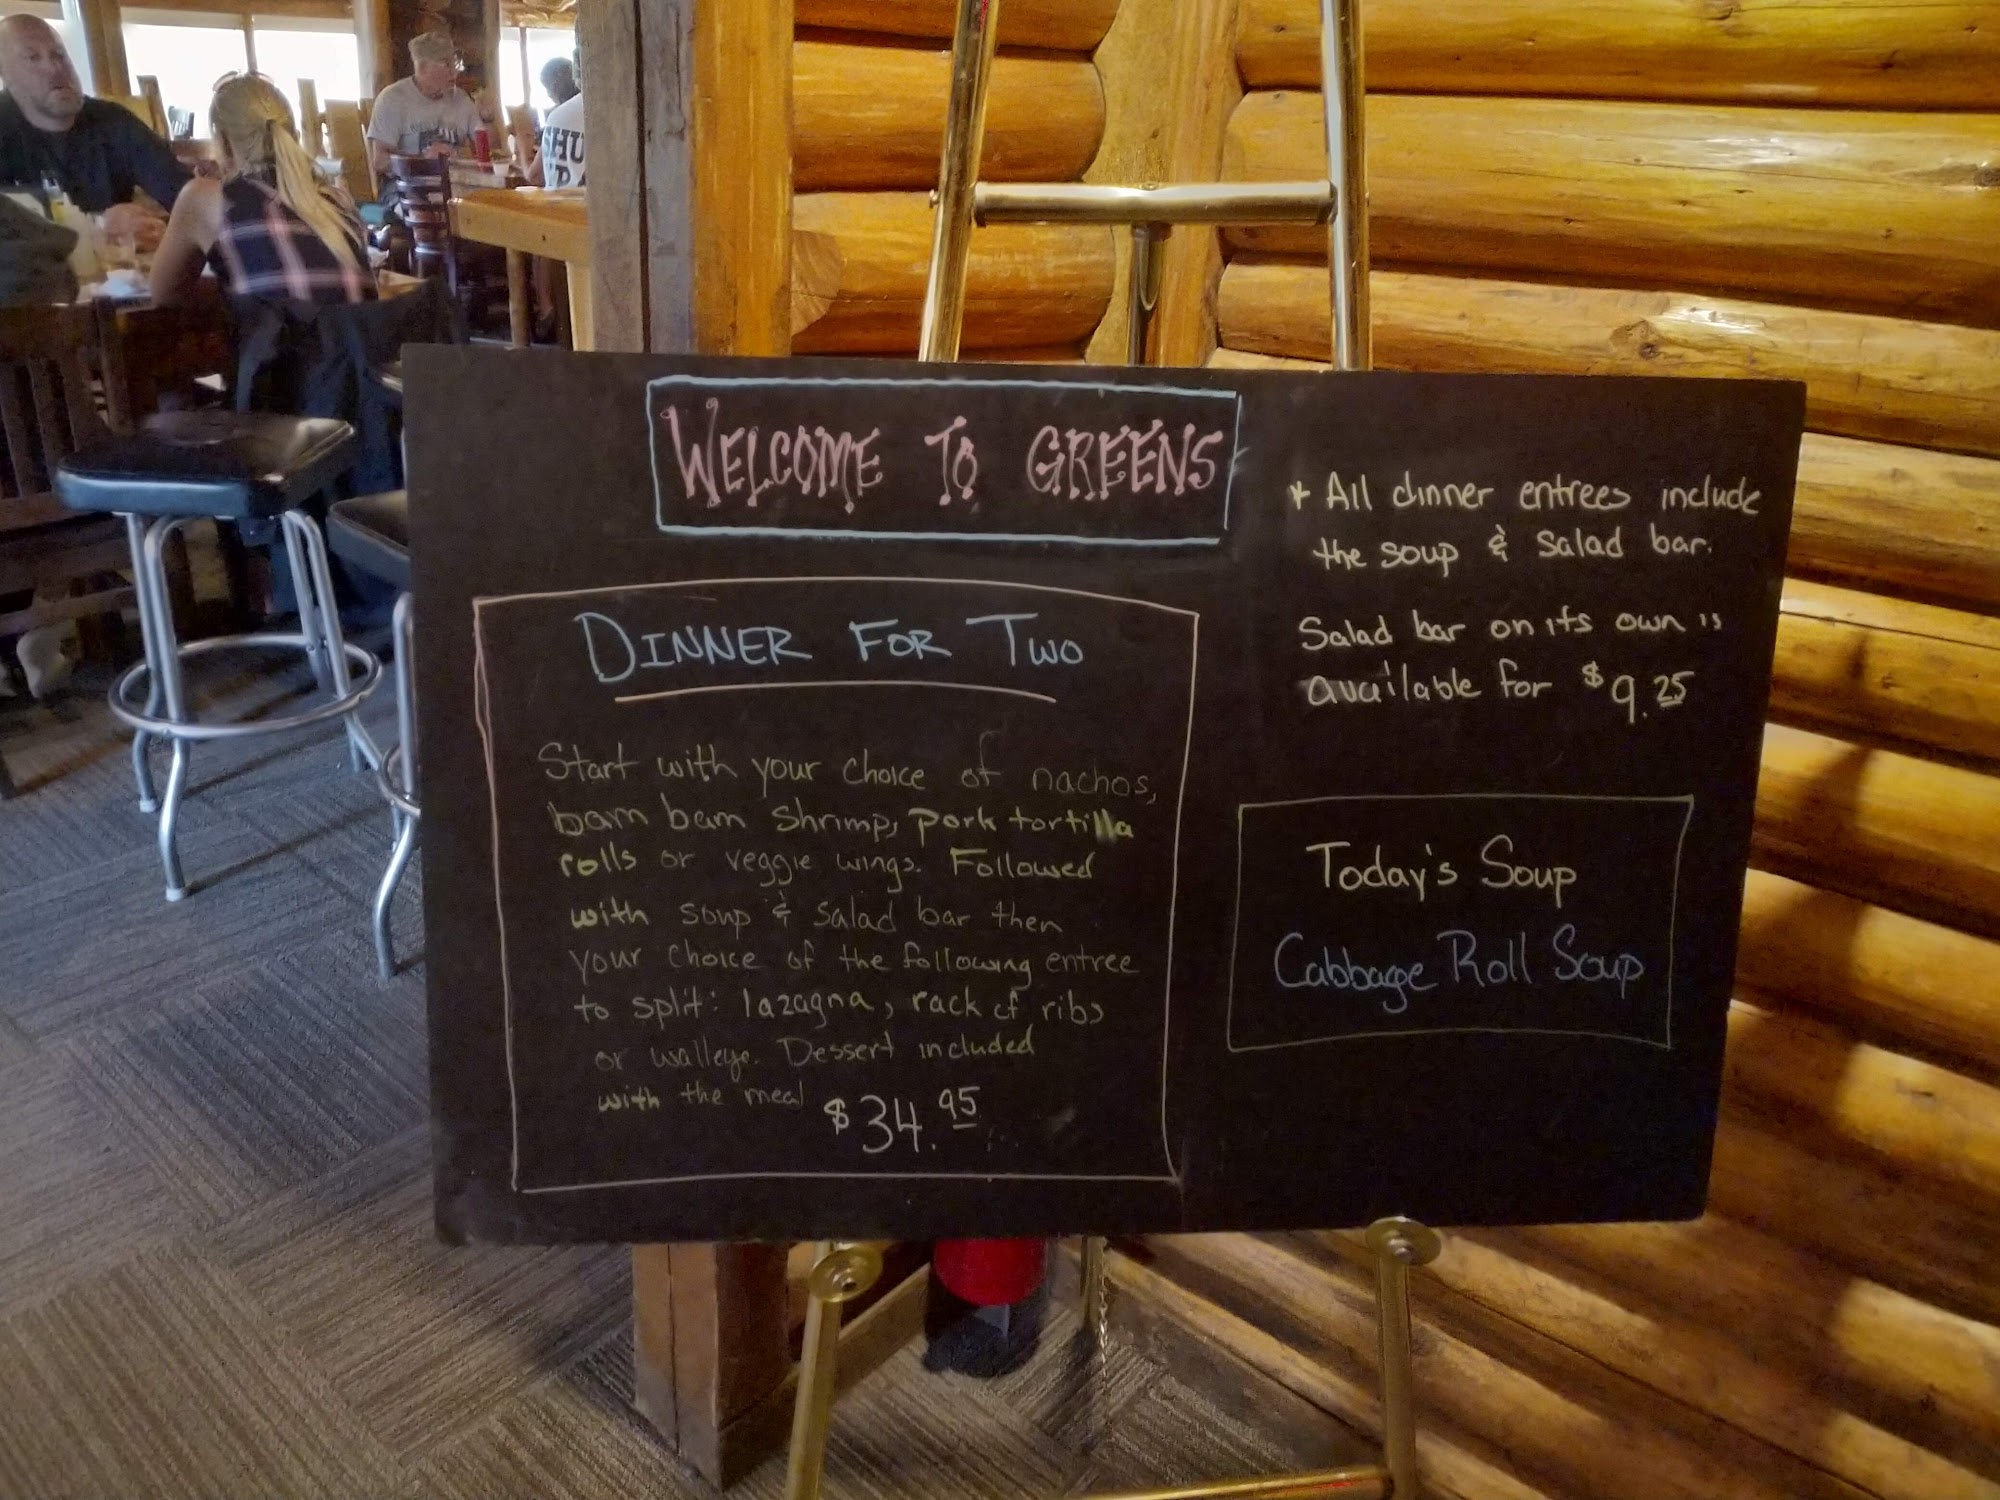 WELCOME TO GREENS
DINNER FOR TWO
Start with your choice of nachos,
bam bam shrimp, pork tortilla
rolls or veggie wings. Followed
with soup & salad bar then
your choice of the following entree
to split: lazagna, rack of ribs
or walleye. Dessert included
with the meal
$34.95
* All dinner entrees include
the soup & salad bar.
Salad bar on its own is
available for $9.25
Today's Soup
Cabbage Roll Soup
SHU